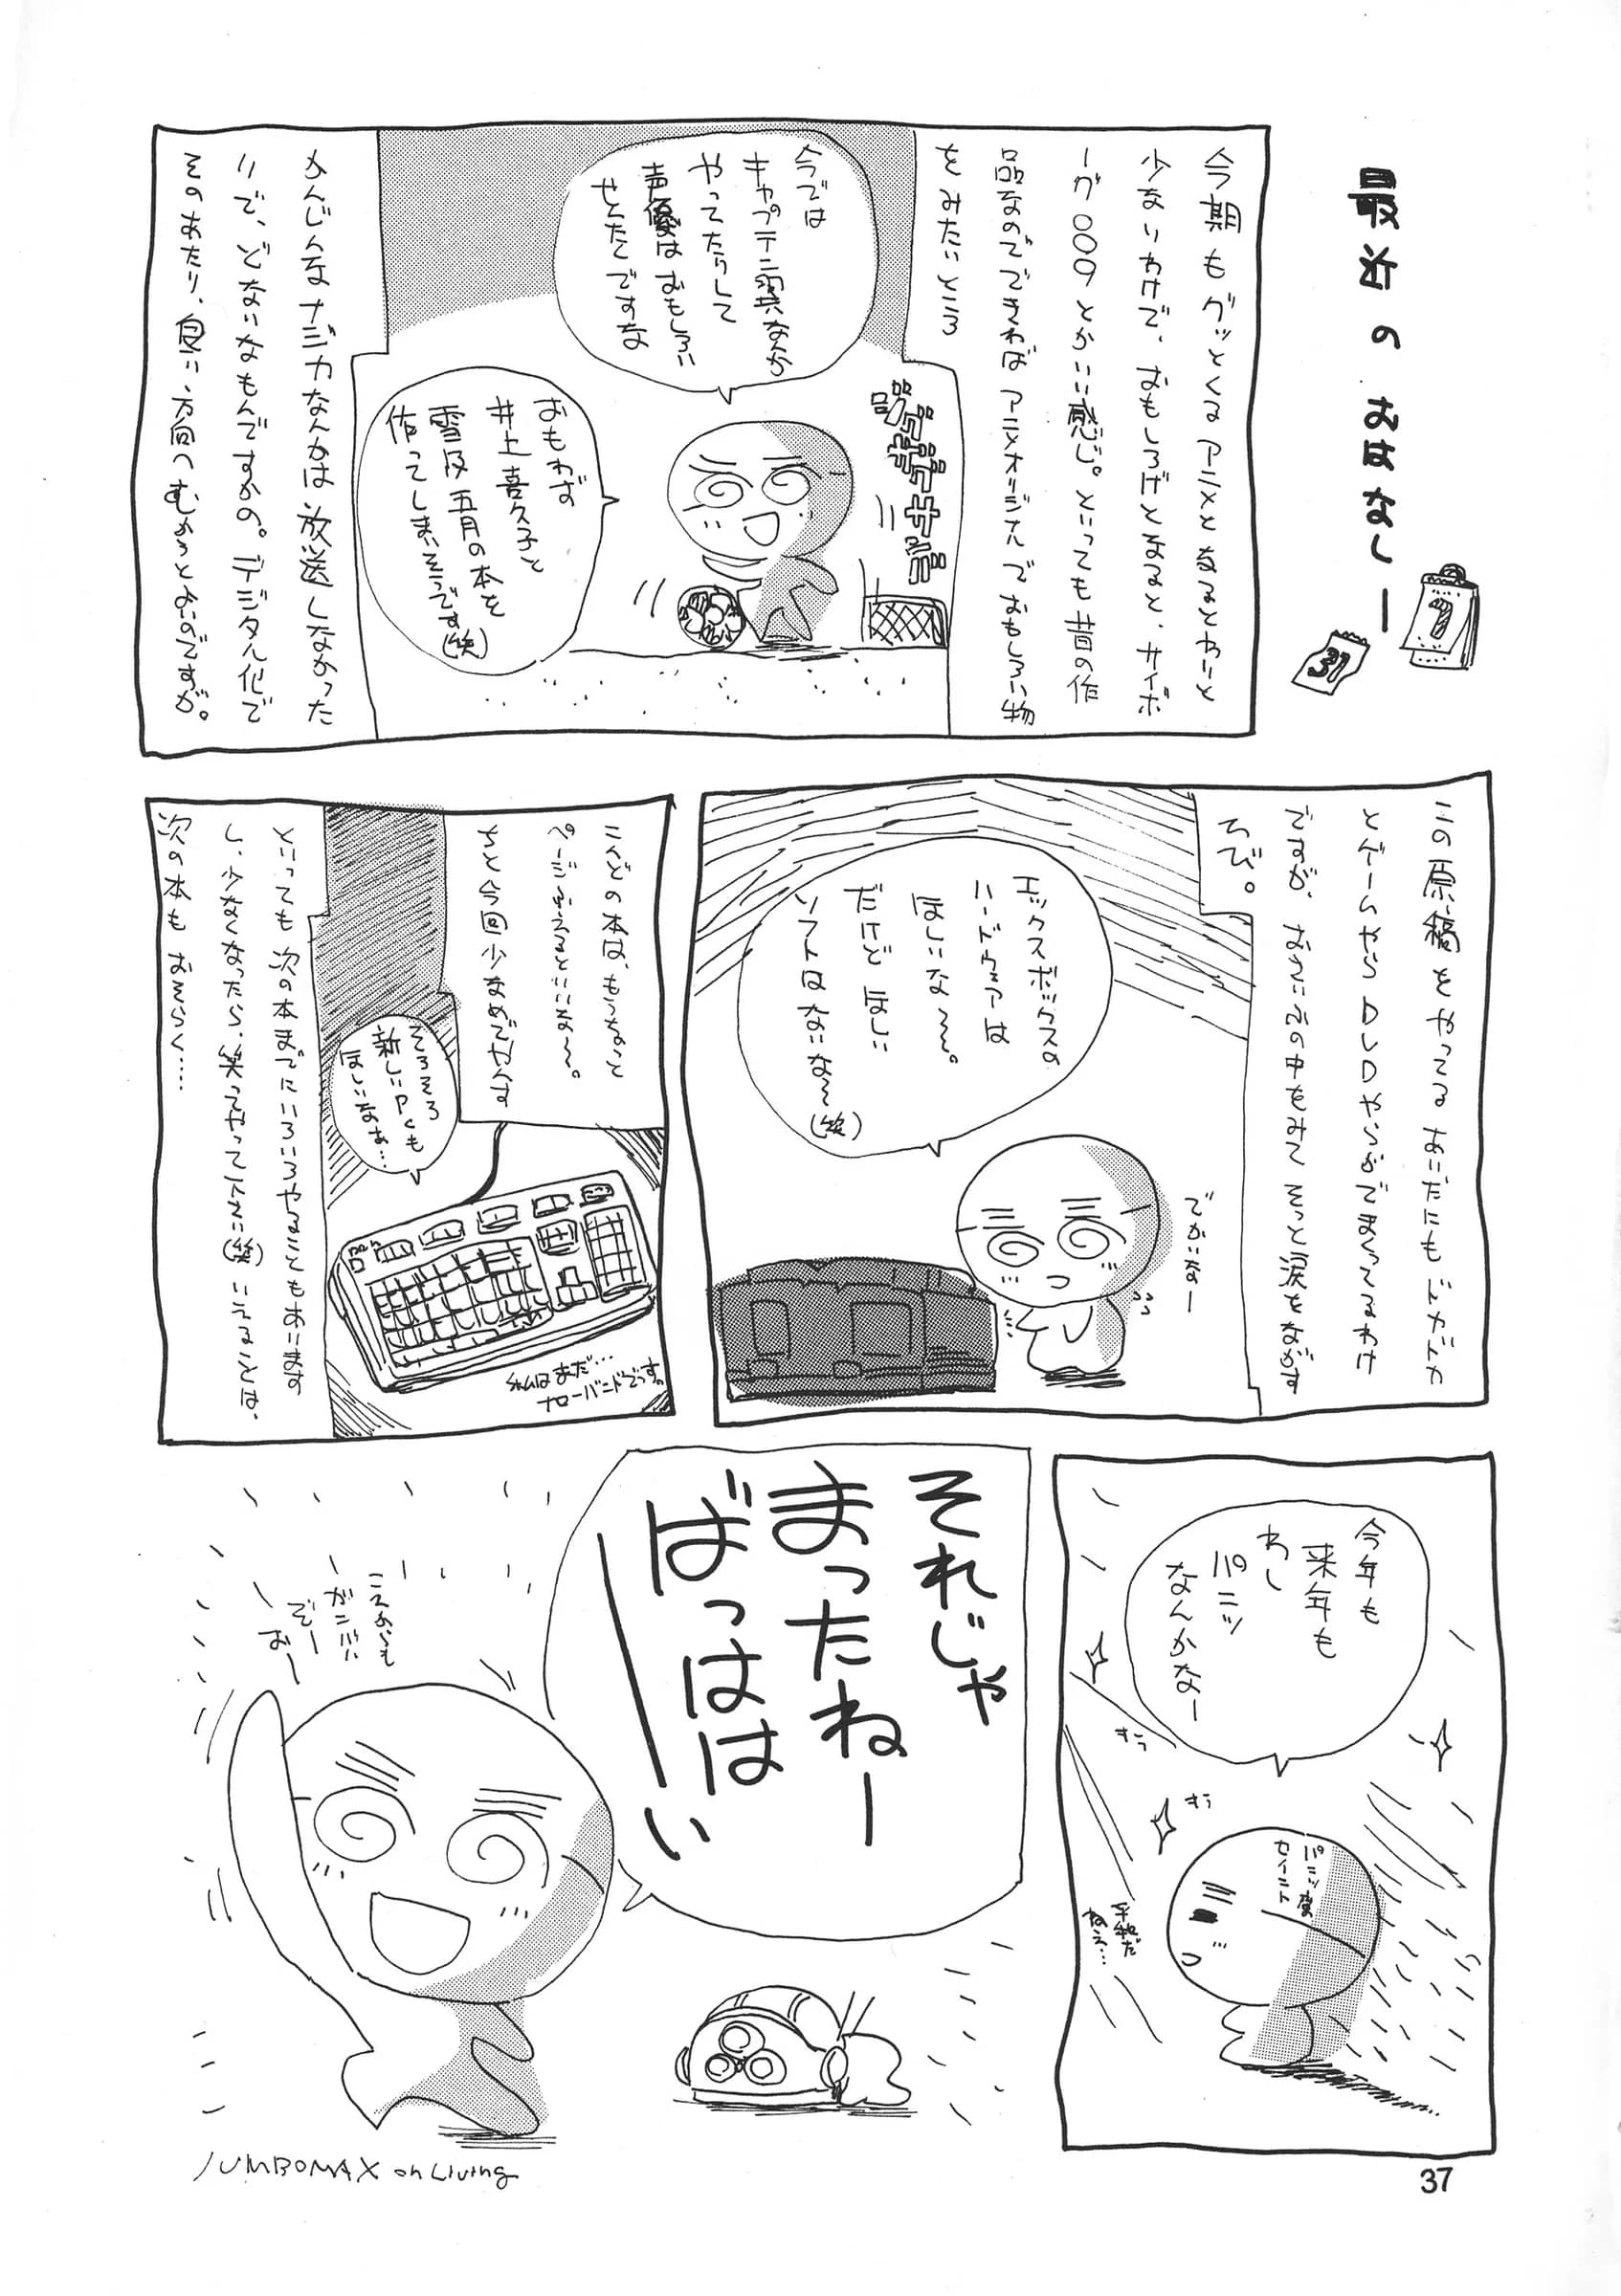 最近のおはなしー
7
31
今期もグッとくるアニメとなるとわりと
少ないわけで、おもしろげとなると、サイボ
ーグ009とかいい感じ。といっても昔の作
品なのでできればアニメオリジナルでおもしろい物
をみたいところ
今では
キャプテン翼なんか
やってたりして
声優はおもしろい
せんたくですな
おもわず
井上喜久子と
雪
五月の本を
作ってしまいそうです(笑)
かんじんなナジカなんかは放送しなかった
りで、どないなもんですかの。デジタル化で
そのあたり、良い方向へむかうとよいのですが。
この原稿をやってるあいだにもドカドカ
とゲームやらDVDやらがでまくってるわけ
ですが、おさいふの中をみてそっと涙をながす
ひび。
エックスボックスの
ハードウェアは
ほしいな〜。
だけどほしい
ソフトはないな〜(笑)
でかいなー
こんどの本は、もうちょこっと
ページふえるといいな〜。
ちと今回少なめでやんす
そろそろ
新しいPCも
ほしいなぁ…
私はまだ…
ナローバンドでっす。
といっても次の本までにいろいろやることもあります
し、少なくなったら、笑ってやって下さい(笑)いえることは、
次の本もおそらく……
今年も
来年も
わし
パンツ
なんかなー
パンツ魔
セイント
平和だ
ねぇ…
それじゃ
まったねー
ばっはは
ーい
これからも
ーガンバル
ぞー
おー
JUMBOMAX on Living
37